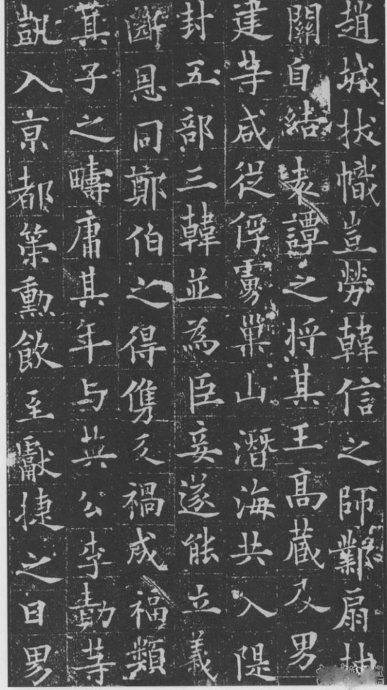 趙城拔幟豈勞韓信之師鄴扇抽
關自結袁譚之將其王高藏及男
建等咸從俘虜巢山潛海共入隄
封五部三韓並為臣妾遂能立義
斷恩同鄭伯之得儁反禍成福類
箕子之疇庸其年与英公李勣等
凱入京都策勳飲至獻捷之日男